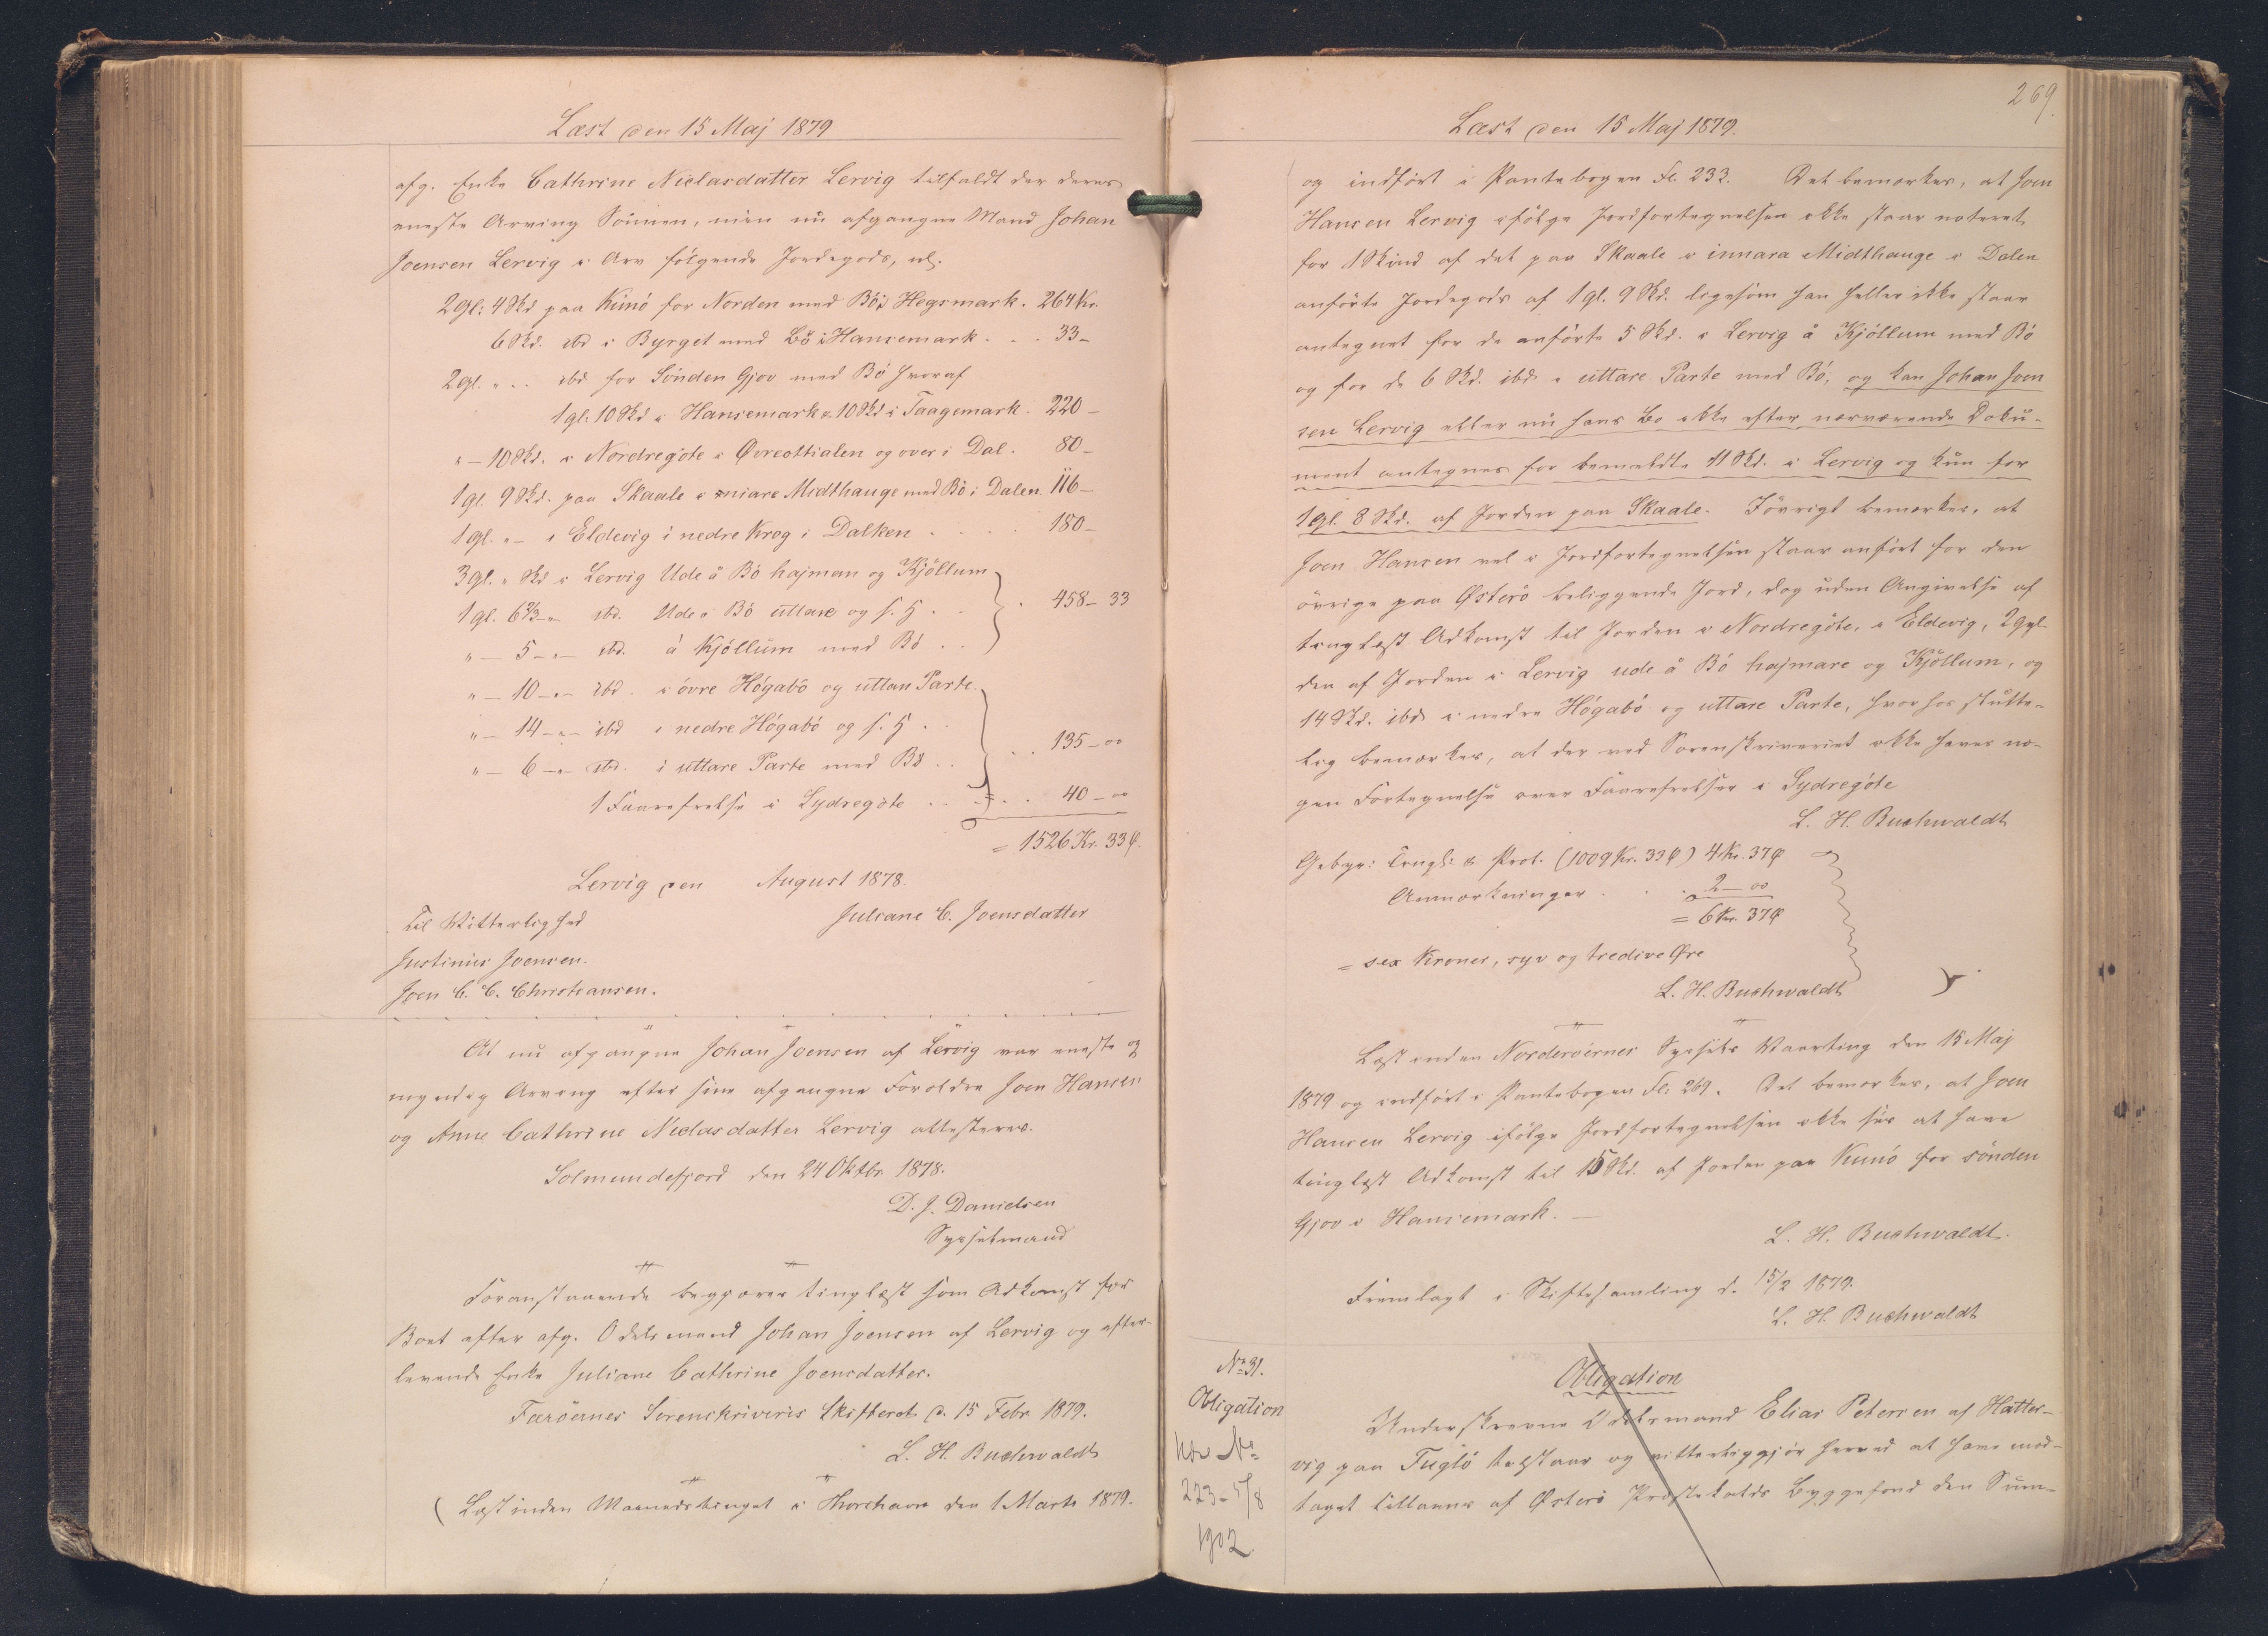 Læst den 15 Maj 1879
afg. Enke Cathrine Niclasdatter Lervig tilfaldt der deres
eneste Arving Sönnen, min nu afgangne Mand Johan
Joensen Lervig i Arv följgende Jordegods, nl.
2 Gl: 4 Skd paa Kunö for Norden med Bö i Hegsmark. 264 Kr.
6 Skd. ibd i Byrget med Bö i Hansemark . . . 33 –
2 gl. " . . ibd for Sönden Gjov med Bö hvoraf
1 gl. 10 Skd i Hansemark & 10 Skd i Taagemark. 220 –
" – 10 Skd. i Nordregöte i Øvreottialen og over i Dal. 80 –
1 gl. 9 Skd. paa Skaale i Midthauge med Bö i Dalen. 116 –
1 gl. " – i Eldevig i nedre Krog i Dalken . . . 180 –
3 gl. " Skd i Lervig Ude å Bö hajman og Kjöllum
1 gl. 6 2/3 – " – ibd. Ude å Bö uttare og s. H . . 458 – 33
" – 5 – " – ibd. å Kjöllum med Bö . .
" – 10 – " – ibd. i övre Högabö og uttan Parte.
" – 14 – " – ibd i nedre Högabö og s. H . .
" – 6 – " – ibd. i uttare Parte med Bö . . . . 135 – 00
1 Faarefrelse i Sydregöte . . . . 40 – 00
= 1526 Kr. 33 Ø.
Lervig den August 1878.
Til Vitterlighed Juliane C. Joensdatter
Justinus Joensen.
Joen C. C. Christiansen.
At nu afgangne Johan Joensen af Lervig var eneste og
myndig Arving efter sine afgangne Forældre Joen Hansen
og Anne Cathrine Niclasdatter Lervig attesteres.
Solmundefjord den 24 Oktbr. 1878.
D. J. Danielsen
Sysselmand
Foranstaaende begjæres tinglæst som Adkomst for
Boet efter afg. Odelsmand Johan Joensen af Lervig og efter-
levende Enke Juliane Cathrine Joensdatter.
Færöernes Sorenskriveris Skifteret d. 15 Febr 1879.
L. H. Buchwaldt
( Læst inden Maanedstinget i Thorshavn den 1 Marts 1879.
269.
Læst den 15 Maj 1879.
og indfört i Pantebogen Fl. 233. Det bemærkes, at Joen
Hansen Lervig ifölge Jordfortegnelsen ikke staar noteret
for 1 Skind af det paa Skaale i innara Midthauge i Dalen
anförte Jordegods af 1 gl. 9 Skd. ligesom han heller ikke staar
antegnet for de anförte 5 Skd. i Lervig å Kjöllum med Bö
og for de 6 Skd. ibd i uttare Parte med Bö, og kan Johan Joen
sen Lervig eller nu hans Bo ikke efter nærværende Doku-
ment antegnes for bemeldte 11 Skd. i Lervig og kun for
1 gl. 8 Skd. af Jorden paa Skaale. Iövrigt bemærkes, at
Joen Hansen vel i Jordfortegnelsen staar anfört for den
övrige paa Østerö beliggende Jord, dog uden Angivelse af
tinglæst Adkomst til Jorden i Nordregöte, i Eldevig, 2 gyl-
den af Jorden i Lervig ude å Bö hajmare og Kjöllum, og
14 Skd. ibd i nedre Högabö og uttare Parte, hvorhos slutte-
lig bemærkes, at der ved Sorenskriveriet ikke haves no-
gen Fortegnelse over Faarefrelser i Sydregöte
L. H. Buchwaldt
Gebyr: Tingl: & Prot. (1009 Kr. 33 Ø) 4 Kr. 37 Ø
Anmærkninger . . . 2 – 00
= 6 Kr. 37 Ø
= sex Kroner, syv og tredive Øre
L. H. Buchwaldt
Læst inden Norderöernes Syssels Vaarting den 15 Maj
1879 og indfört i Pantebogen Fl: 269. Det bemærkes, at Joen
Hansen Lervig ifölge Jordfortegnelsen ikke ses at have
tinglæst Adkomst til 15 Skd. af Jorden paa Kunö for sönden
Gjov i Hansemark. –
L. H. Buchwaldt.
Fremlagt i Skiftesamling d. 15/2 1879.
L. H. Buchwaldt
No 31.
Obligation
No
223 – 5/8
1902.
Obligation
Underskrevne Odelsmand Elias Petersen af Hatter-
vig paa Fuglö tilstaar og vitterliggjör herved at have mod-
taget tillaans af Østerö Præstekalds Byggefond den Sum-